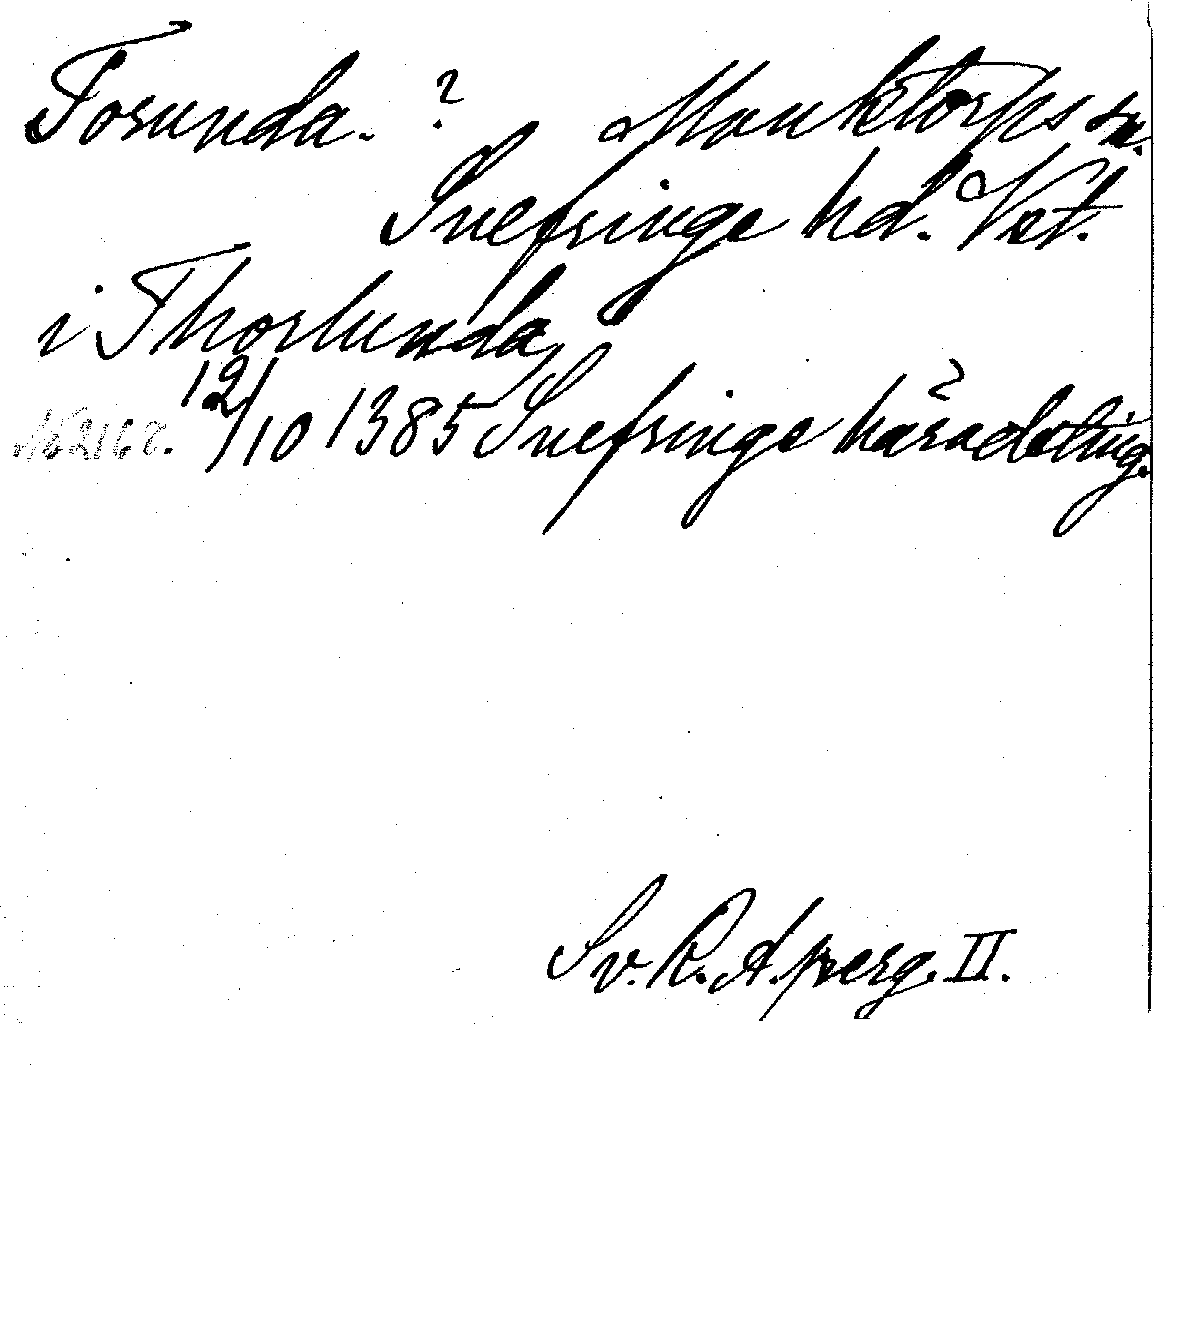 Tosunda. ? Munktorps sn.
Snefringe hd. Vst.
i Thorlunda
No 2167. 12/10 1385 Snefringe häradsting.
Sv. R. A. perg. II.